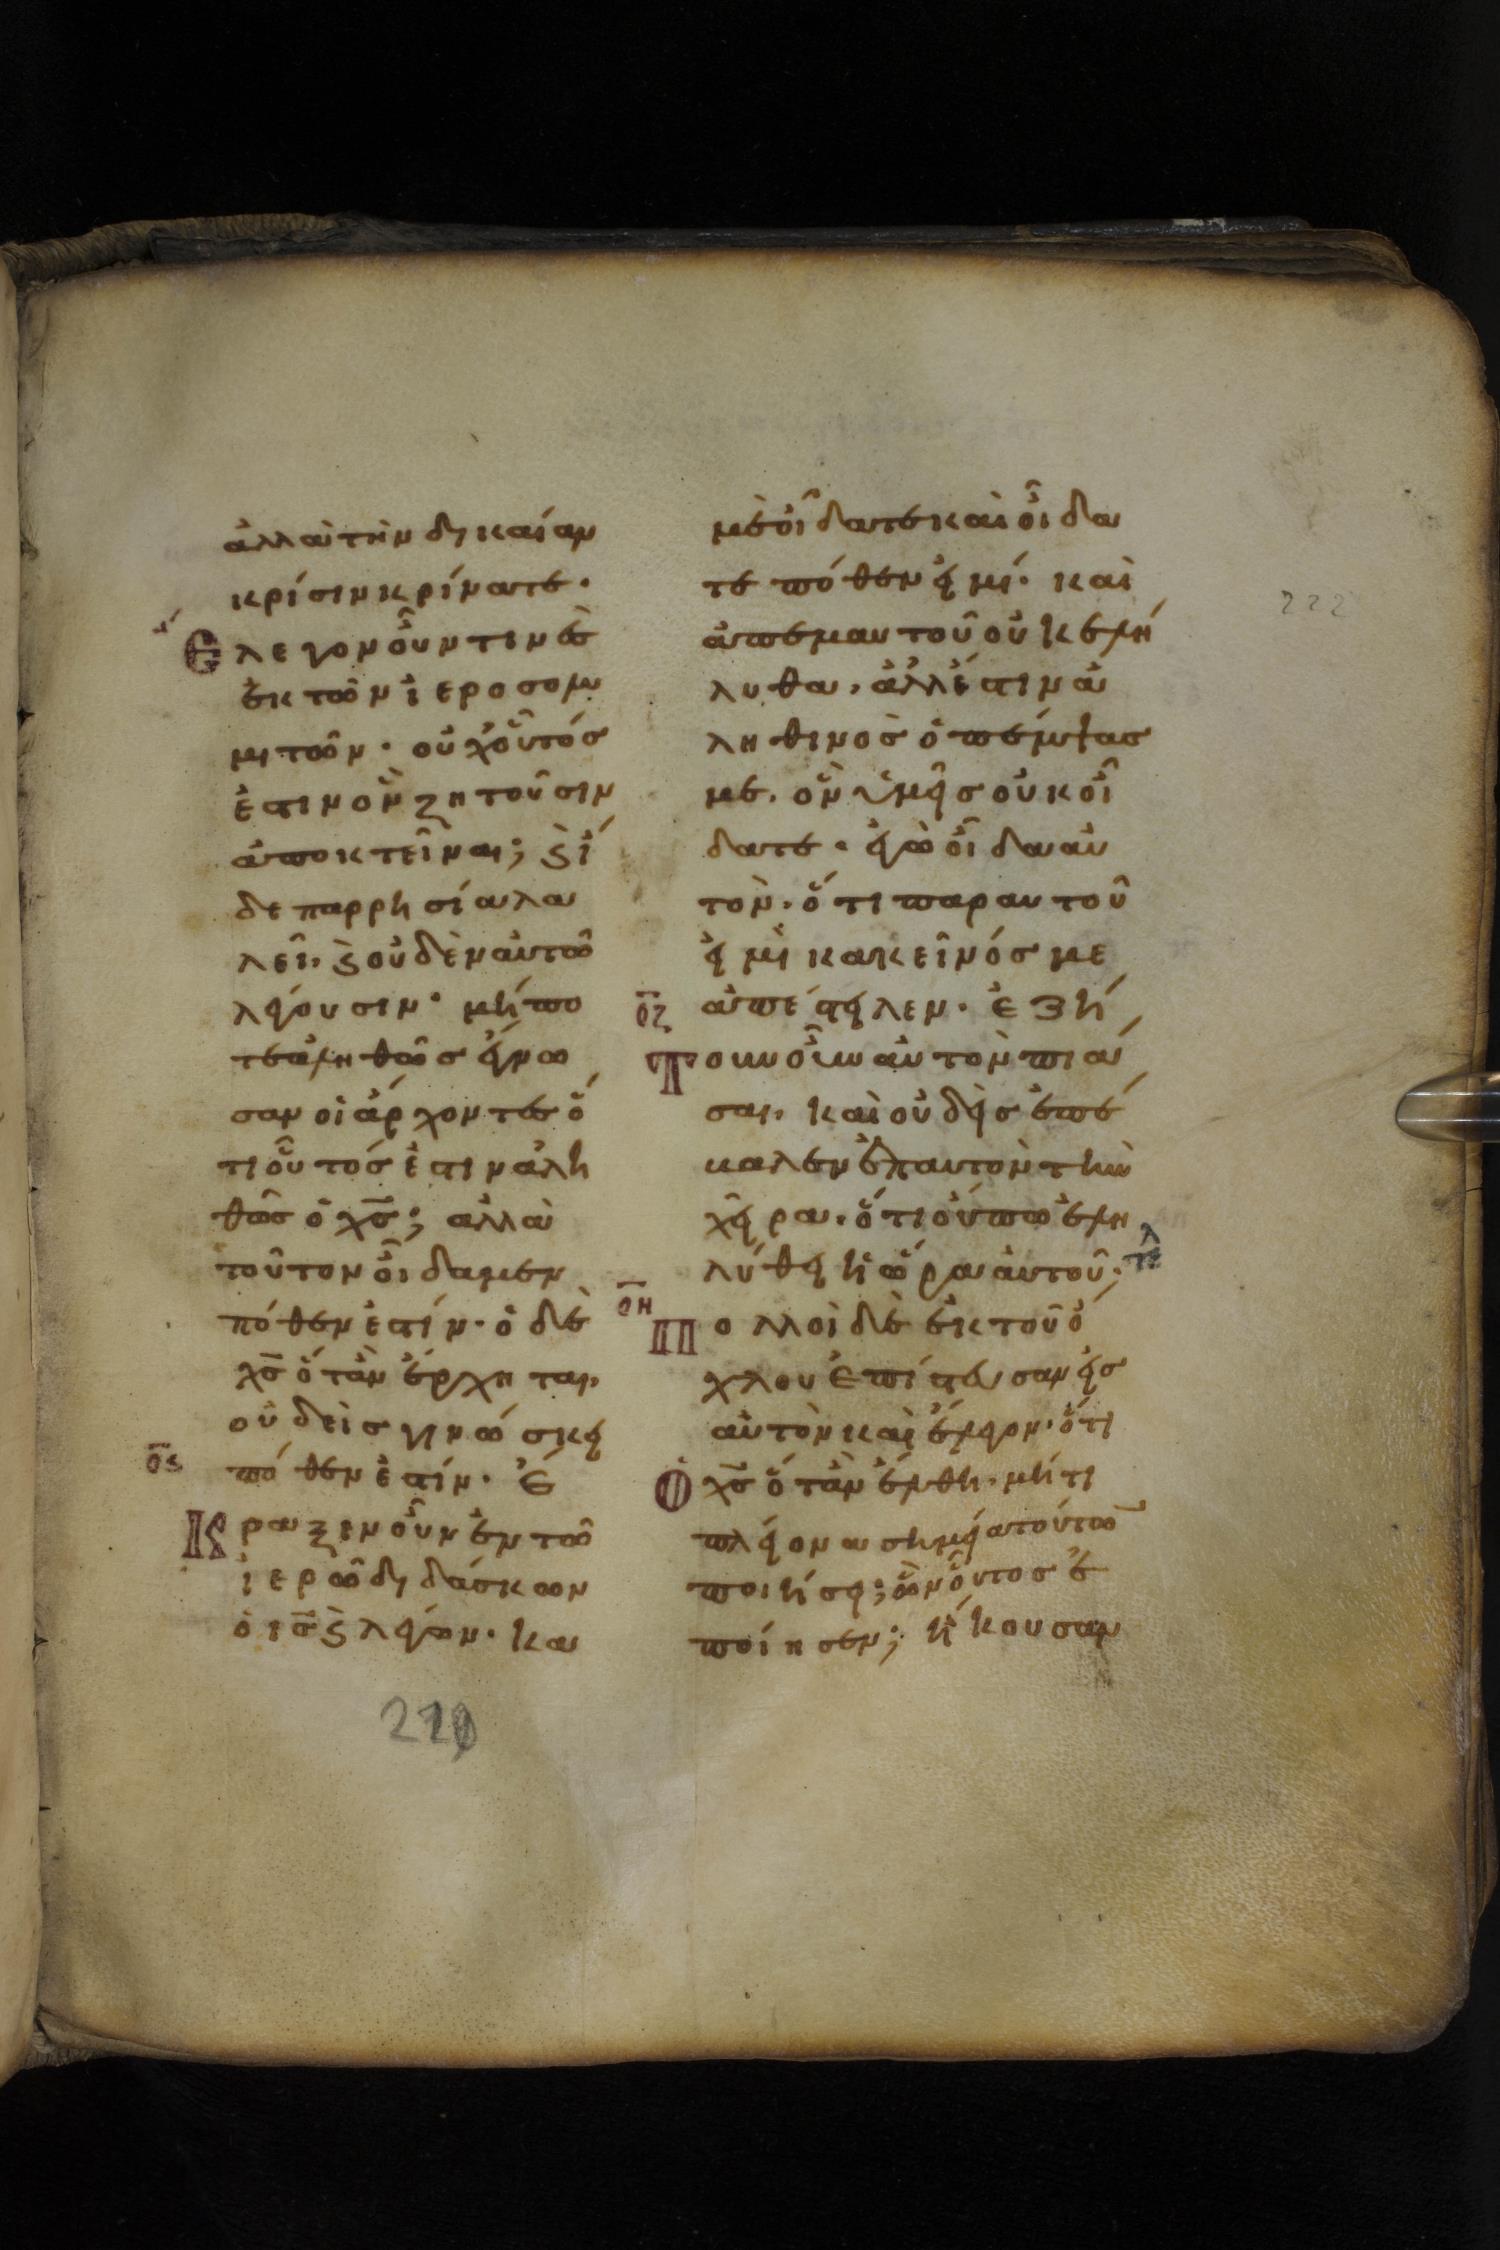 ἀλλὰ τὴν δικαίαν
κρίσιν κρίνατε·
Ελεγον οὖν τινὲς
ἐκ τῶν ἱεροσολυ
μιτῶν· οὐχ οὗτός
ἐστιν ὃν ζητοῦσιν
ἀποκτεῖναι; ϗ ἴ
δε παρρησία λα
λεῖ. ϗ οὐδὲν αὐτῶ
λέγουσιν· μήπο
τε ἀληθῶς ἔγνω
σαν οἱ ἄρχοντες ὅ
τι οὗτός ἐστιν ἀλη
θῶς ὁ χς; ἀλλὰ
τοῦτον οἴδαμεν
πόθεν ἐστίν· ὁ δὲ
χς ὅταν ἔρχηται,
οὐδεὶς γινώσκει
ος
πόθεν ἐστίν· Έ
Κραζεν οὖν ἐν τῶ
ἱερῶ διδάσκων
ὁ ις ϗ λέγων· κα
μὲ οἴδατε καὶ οἴδα
τε πόθεν εἰμί· καὶ
ἀπεμαυτοῦ οὐκ ελή
λυθα. ἀλλ ἔστιν ἀ
ληθινὸς ὁ πέμψας
με. ὃν ὑμεῖς οὐκ οἴ
δατε· ἐγὼ οἶδα αὐ
τὸν. ὅτι παραυτοῦ
εἰμὶ κακεῖνός με
οζ
ἀπέστειλεν· Ἐζή
Τουν οὖν αὐτὸν πιά
σαι, καὶ οὐδεὶς ἐπέ
βαλεν ἐπαυτὸν τὴν
χεῖρα. ὅτι οὔπω ἐλη
λύθει ἡ ὥρα αὐτοῦ;
τελ
οη
Πολλοὶ δὲ ἐκ τοῦ ὄ
χλου ἐπίστευσαν εἰς
αὐτὸν καὶ ἔλεγον· ὅτι
Ὁ χς ὅταν ἔλθη. μήτι
πλείονα σημεῖα τούτων
ποιήσει; ὧν οὗτος ἐ
ποίησεν; ἤκουσαν
222
220